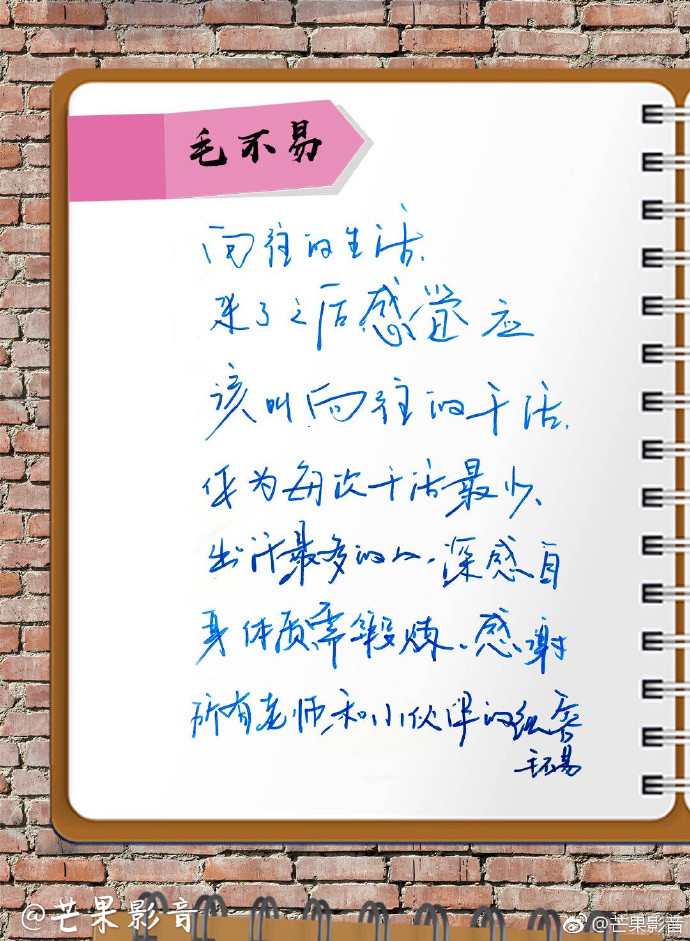 毛不易
向往的生活，
来了之后感觉应
该叫向往的干活，
作为每次干活最少、
出汗最多的人，深感自
身体质需锻炼、感谢
所有老师和小伙伴的包容
毛不易
@芒果影音
@芒果影音